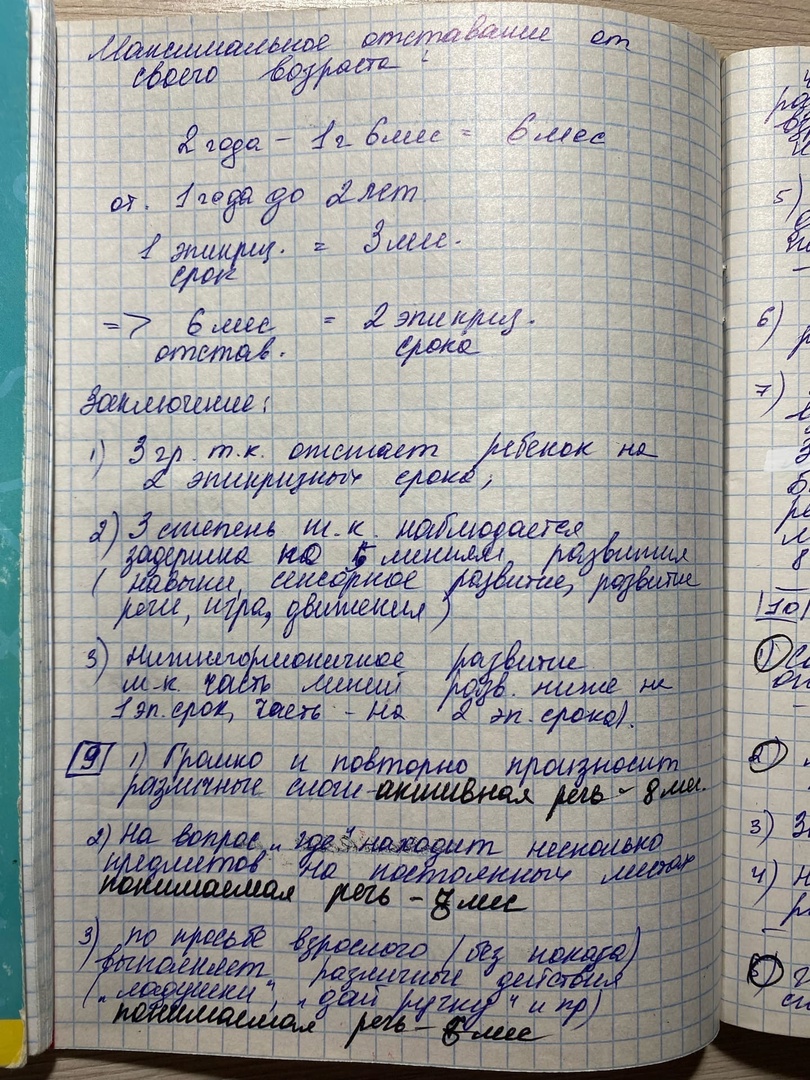 Максимальное отставание от
своего возраста:
2 года - 1 г 6 мес = 6 мес
от. 1 года до 2 лет.
1 эпикриз. = 3 мес.
срок
=> 6 мес = 2 эпикриз.
отстав. срока
Заключение:
1) 3 гр. т.к. отстает ребенок на
2 эпикризных срока;
2) 3 степень т.к. наблюдается
задержка по 5 линиям развития
( навыки, сенсорное развитие, развитие
речи, игра, движения)
3) Нижнегармоничное развитие
т.к. часть линий разв. ниже на
1 эп. срок, часть - на 2 эп. срока).
9 1) Громко и повторно произносит
различные слоги - активная речь - 8 мес.
2) На вопрос "где" находит несколько
предметов на постоянных местах
понимаемая речь - 7 мес
3) по просьбе взрослого (без показа)
выполняет различные действия
("ладушки", "дай ручку" и пр)
понимаемая речь - 8 мес
5)
6)
7)
10
1)
2)
3)
4)